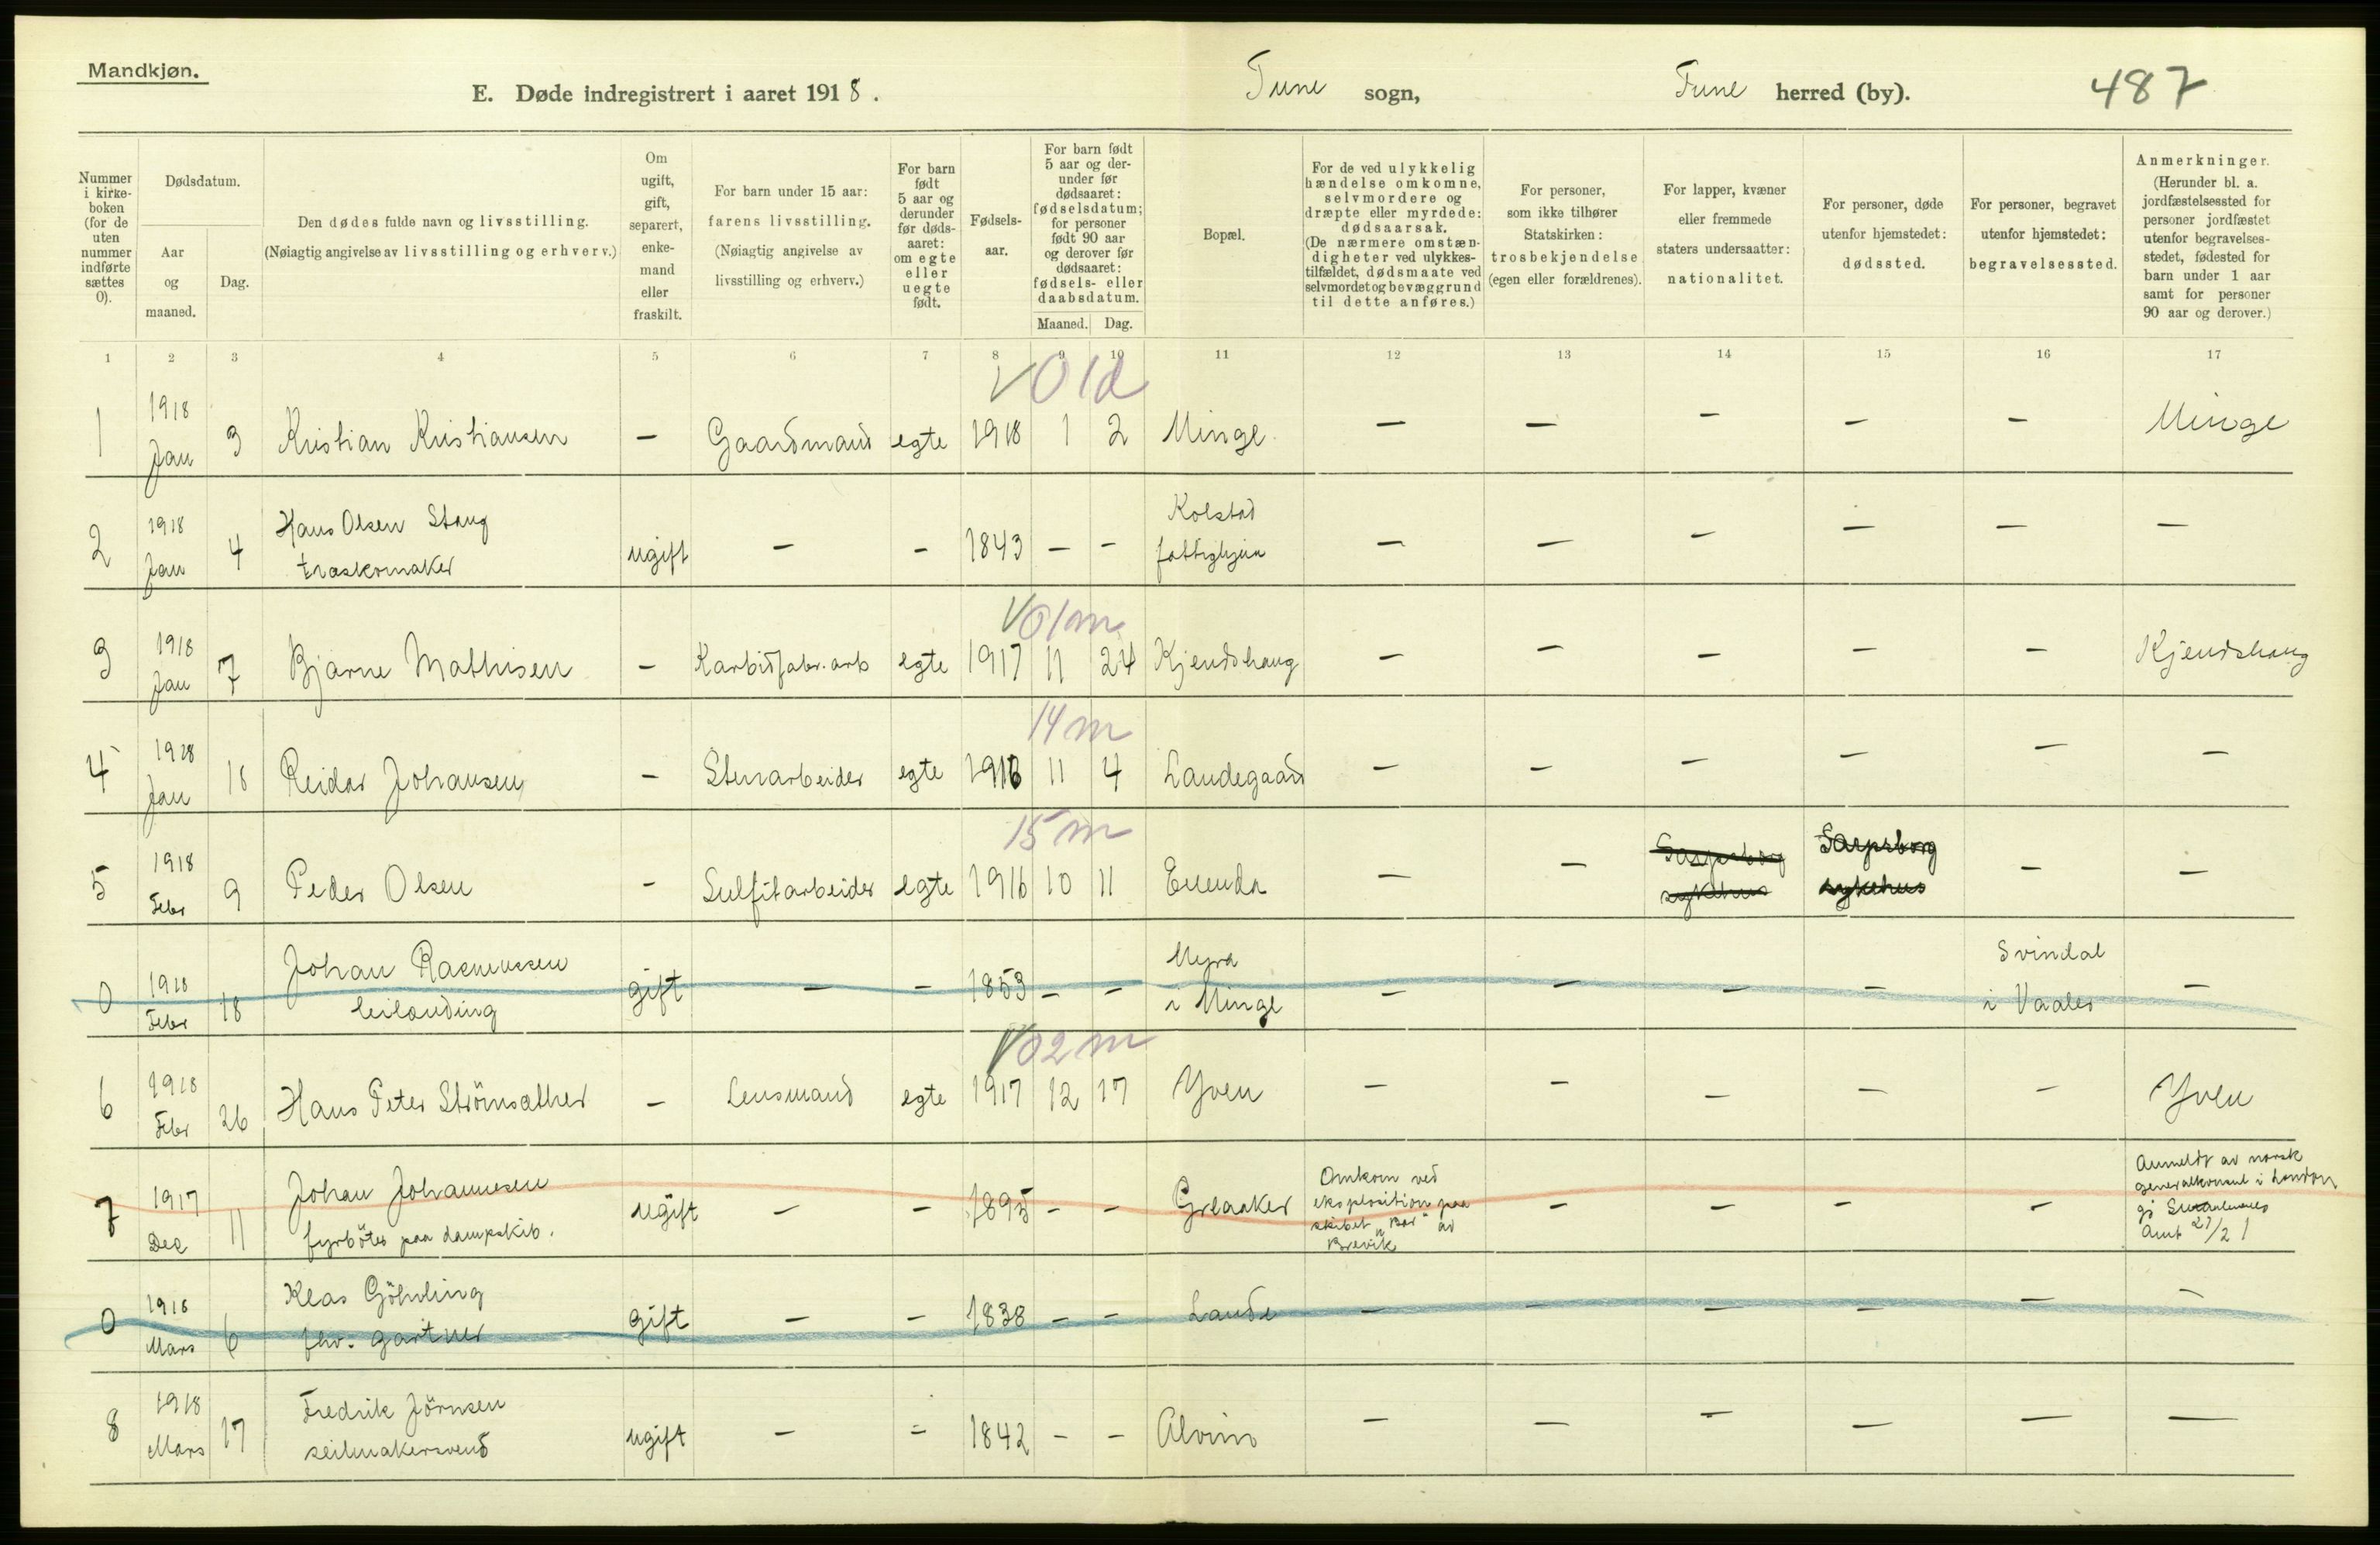 Mandkjøn.
E. Døde indregistrert i aaret 1918.
Tune sogn,
Tune herred (by).
487
Nummer i kirke-boken (for de uten nummer indførte sættes 0).
Dødsdatum.
Aar og maaned.
Dag.
Den dødes fulde navn og livsstilling.
(Nøiagtig angivelse av livsstilling og erhverv.)
Om ugift, gift, separert, enke-mand eller fraskilt.
For barn under 15 aar:
farens livsstilling.
(Nøiagtig angivelse av livsstilling og erhverv.)
For barn født 5 aar og derunder før døds-aaret: om egte eller uegte født.
Fødsels-aar.
For barn født 5 aar og der-under før dødsaaret: fødselsdatum; for personer født 90 aar og derover før dødsaaret: fødsels- eller daabsdatum.
Maaned. Dag.
Bopæl.
For de ved ulykkelig hændelse omkomne, selvmordere og dræpte eller myrdede: dødsaarsak.
(De nærmere omstæn-digheter ved ulykkes-tilfældet, dødsmaate ved selvmordet og bevæggrund til dette anføres.)
For personer, som ikke tilhører Statskirken: trosbekjendelse (egen eller forældrenes).
For lapper, kvæner eller fremmede staters undersaatter: nationalitet.
For personer, døde utenfor hjemstedet: dødssted.
For personer, begravet utenfor hjemstedet: begravelsessted.
Anmerkninger.
(Herunder bl. a. jordfæstelsessted for personer jordfæstet utenfor begravelses-stedet, fødested for barn under 1 aar samt for personer 90 aar og derover.)
1 2 3 4 5 6 7 8 9 10 11 12 13 14 15 16 17
V 0 1d
1 1918 Jan 3 Kristian Kristiansen – Gaardmand egte 1918 1 2 Minge – – – – – Minge
2 1918 Jan 4 Hans Olsen Stang
træskomaker ugift – – 1843 – – Kolstad
fattighjem – – – – – –
V 0 1m
3 1918 Jan 7 Bjarne Mathisen – Karbidfabr. arb egte 1917 11 24 Kjendshaug – – – – – Kjendshaug
14 m
4 1918 Jan 18 Reidar Johansen – Stenarbeider egte 1916 11 4 Landegaard – – – – – –
15 m
5 1918 Febr 9 Peder Olsen – Sulfitarbeider egte 1916 10 11 Enenda – – Sarpsborg sykehus Sarpsborg sykehus – –
0 1918 Febr 18 Johan Rasmussen
leilænding gift – – 1853 – – Myra
i Minge – – – – Svindal
i Vaaler –
V 0 2 m
6 1918 Febr 26 Hans Peter Strömsæther – Lensmand egte 1917 12 17 Yven – – – – – Yven
7 1917 Dec 11 Johan Johannesen
fyrböter paa dampskib. ugift – – 1895 – – Greaaker Omkom ved
eksplosition paa
skibet "Bør" av
Brevik – – – – Anmeldt av norsk
generalkonsul i London
Amt 27/2
0 1918 Mars 6 Klas Göhvling
fhv. gartner gift – – 1838 – – Lande – – – – – –
8 1918 Mars 17 Fredrik Jörnsen
seilmakersvend ugift – – 1842 – – Alvim – – – – – –